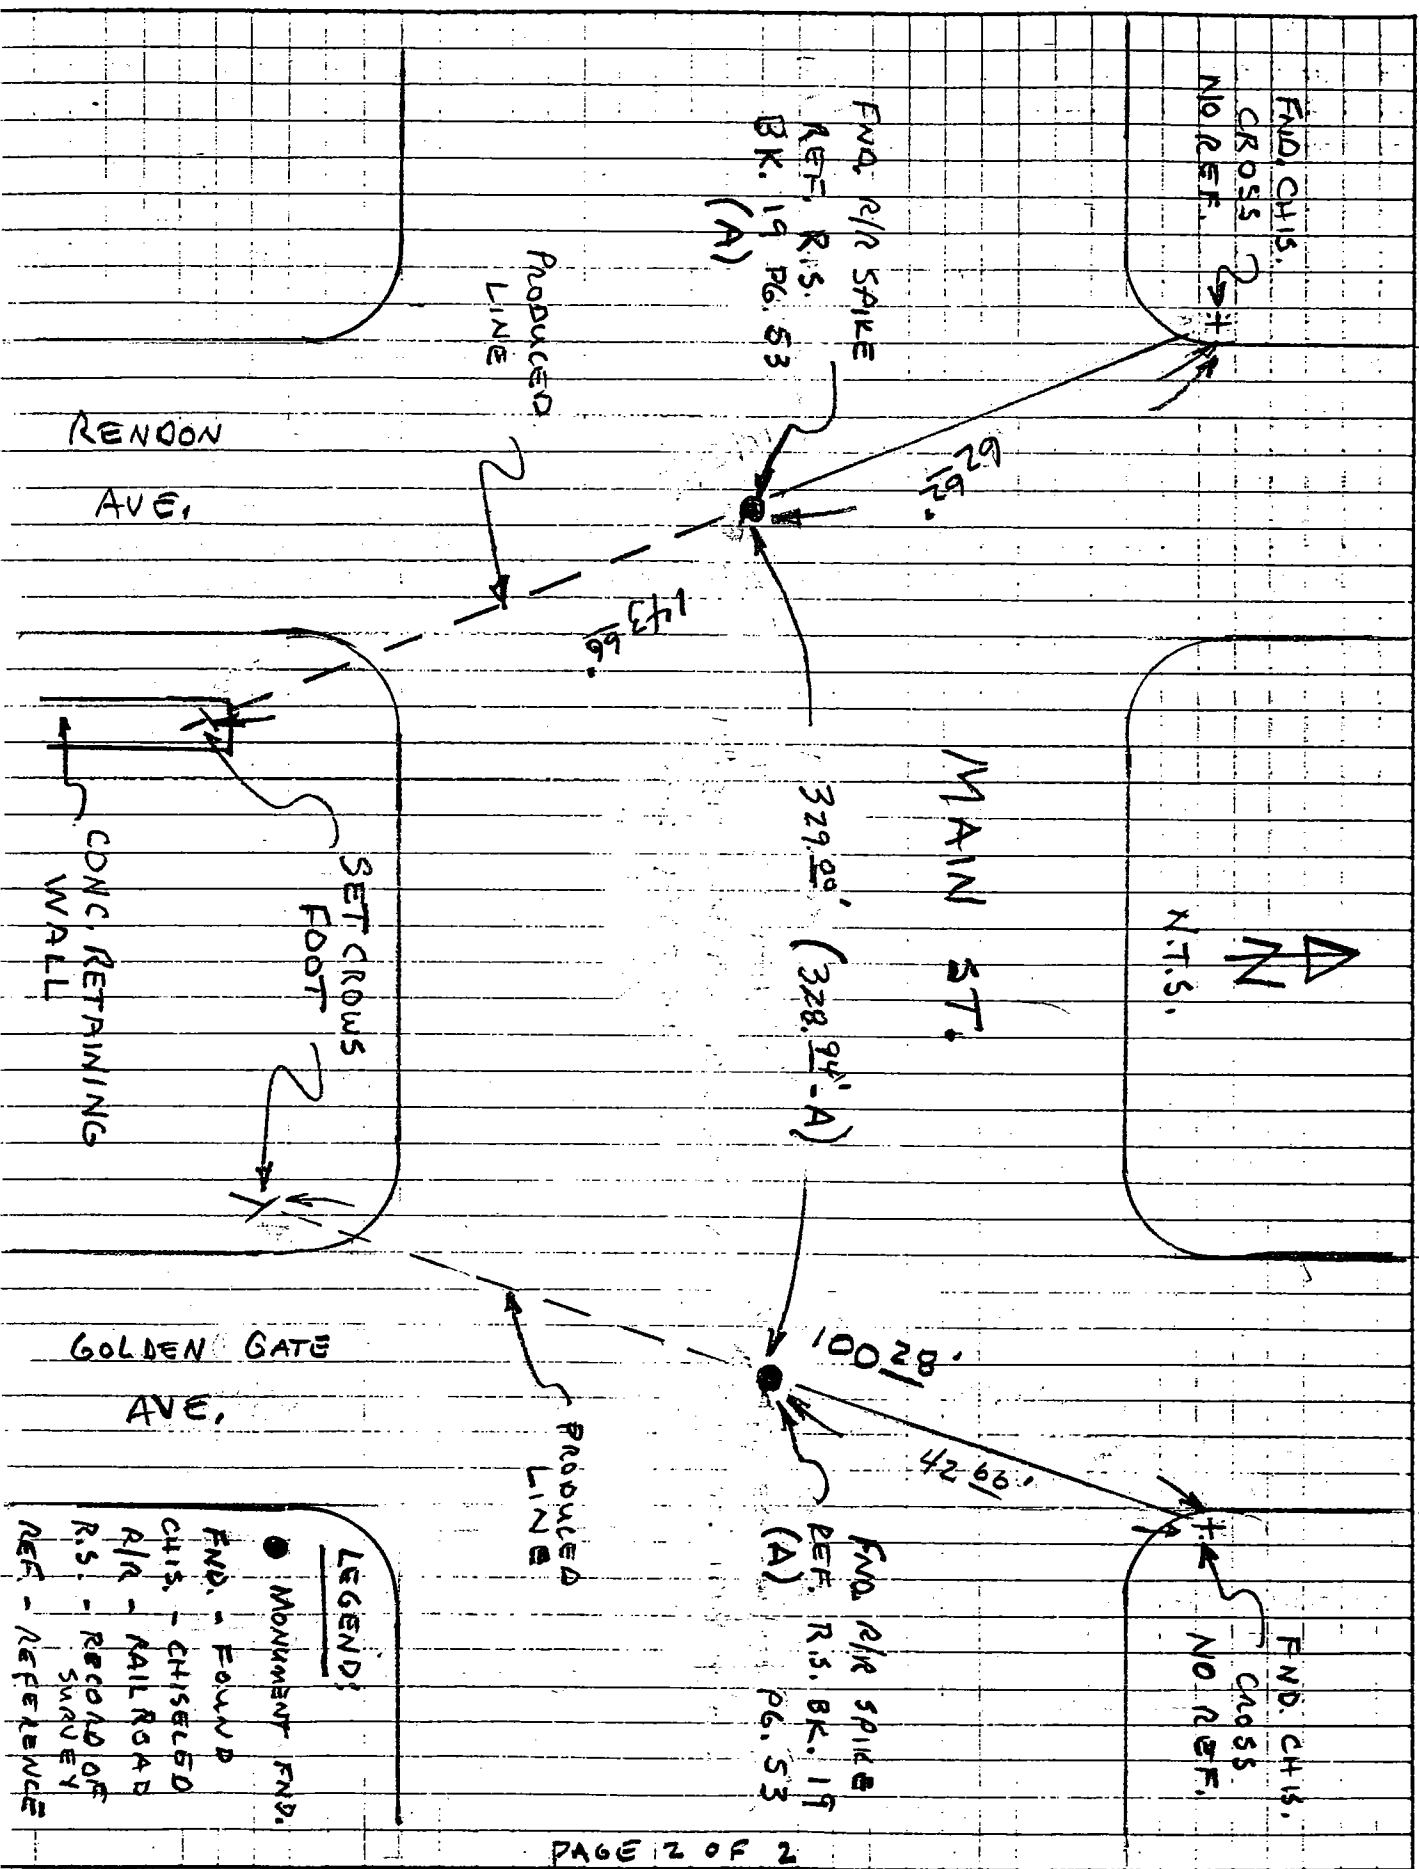 FND. CHIS.
CROSS
NO REF.
FND. R/R SPIKE
REF. R.S.
BK. 19 PG. 53
(A)
PRODUCED
LINE
RENDON
AVE.
62 62'
143 66'
N
N.T.S.
MAIN ST.
329.00' (328.94'-A)
SET CROWS
FOOT
CONC. RETAINING
WALL
GOLDEN GATE
AVE.
42 63'
FND. CHIS.
CROSS
NO REF.
FND. R/R SPIKE
REF. R.S. BK. 19
(A) PG. 53
PRODUCED
LINE
LEGEND:
MONUMENT FND.
FND. - FOUND
CHIS. - CHISELED
R/R - RAILROAD
R.S. - RECORD OF
SURVEY
REF. - REFERENCE
PAGE 2 OF 2